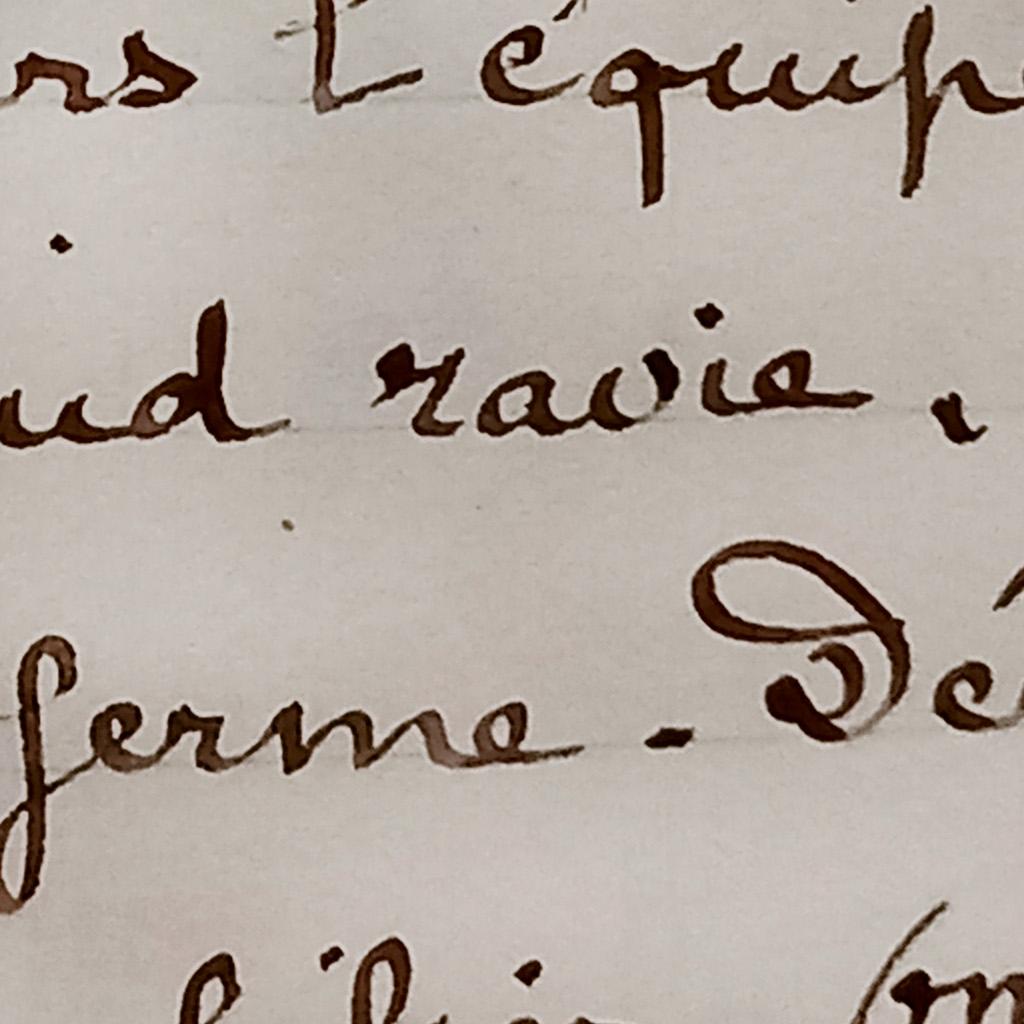 rs l'équip
ud ravie.
ferme - Dé